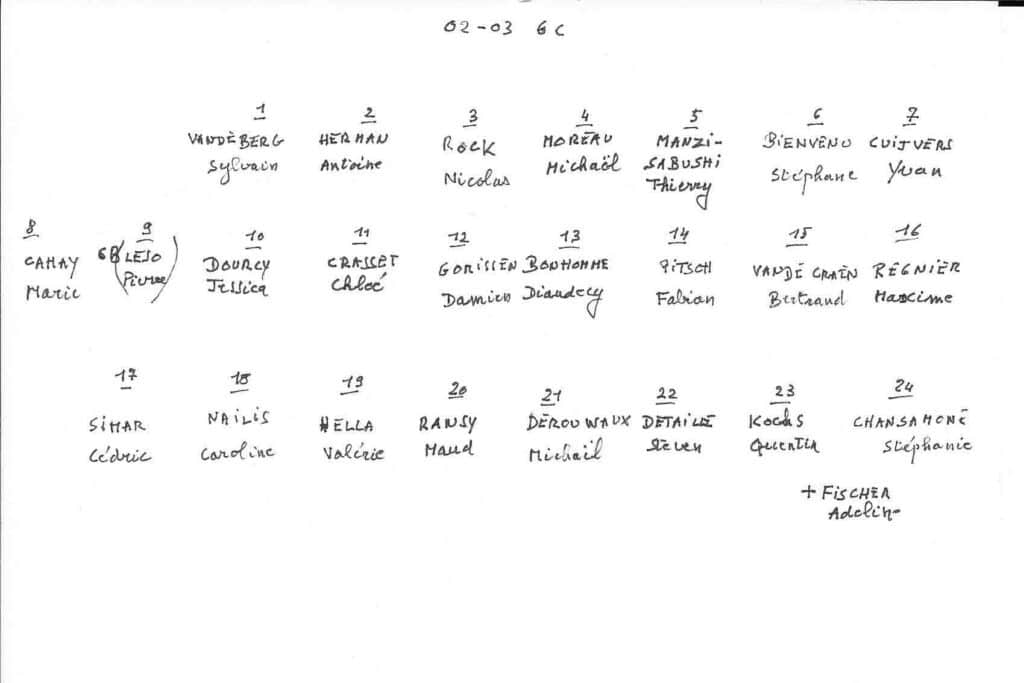 02-03 6C
1 2 3 4 5 6 7
VANDEBERG HERMAN ROCK MOREAU MANZI- BIENVENU CUIJVERS
Sylvain Antoine Nicolas Michaël SABUSHI Stéphane Yvan
Thierry
8 9 10 11 12 13 14 15 16
CAHAY 6B (LEJO DOURCY CRASSET GORISSEN BONHOMME PITSCH VANDE CRAEN REGNIER
Marie Pierre) Jessica Chloé Damien Dieudecy Fabian Bertrand Maxime
17 18 19 20 21 22 23 24
SIMAR NAILIS HELLA RANSY DEROUWAUX DETAILLE KOCKS CHANSAMONE
Cédric Caroline Valérie Maud Michaël Steven Quentin Stéphanie
+ FISCHER
Adeline